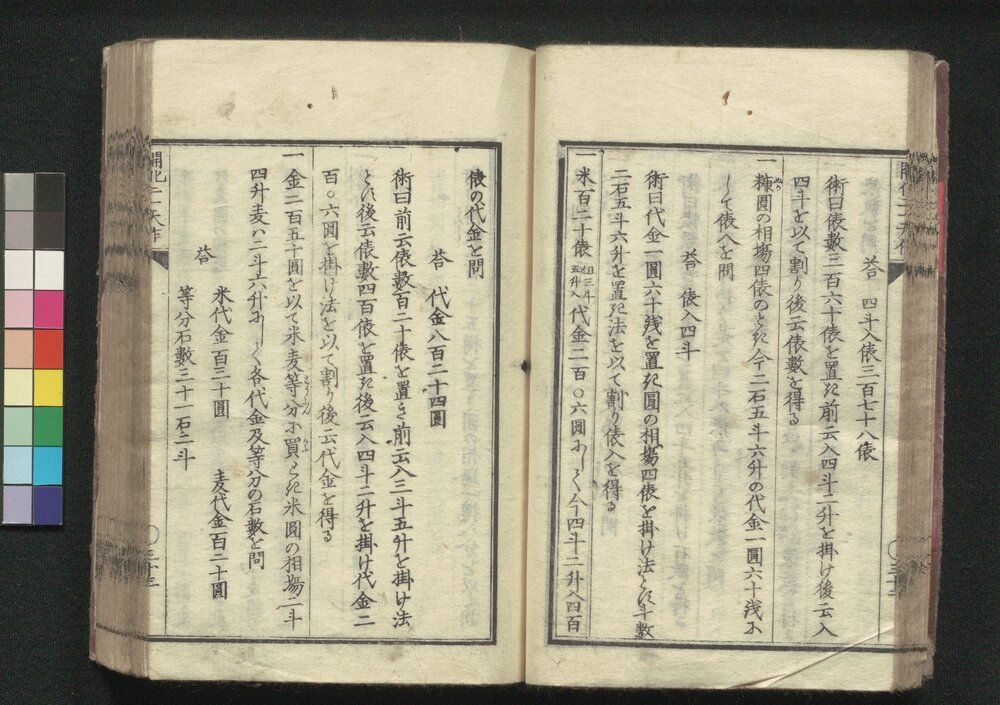 答 四斗入俵三百七十八俵
術曰俵数三百六十俵を置き前云入四斗二升を掛け後云入
四斗を以て割り後云俵數を得る
一糠圓の相塲四俵のとき今二石五斗六升の代金一圓六十浅に
して俵入を問
答 俵入四斗
術曰代金一圓六十浅を置き圓の相塲四俵を掛け法とし斗數
二石五斗六升を置き法を以て割り俵入を得る
一米百二十俵但三斗五升入代金二百〇六圓あらく今四斗二升入四百
俵の代金を問
答 代金八百二十四圓
術曰前云俵數百二十俵を置き前云入三斗五升を掛け法
とし後云俵數四百俵を置き後云入四斗二升を掛け代金二
百〇六圓を掛け法を以て割り後云代金を得る
一金二百五十圓を以て米麦等分に買とき米圓の相塲二斗
四升麦ハ二斗六升ふして各代金及等分の石數を問
答
米代金百三十圓 麦代金百二十圓
等分石數三十一石二斗
開化二一天作
三十三